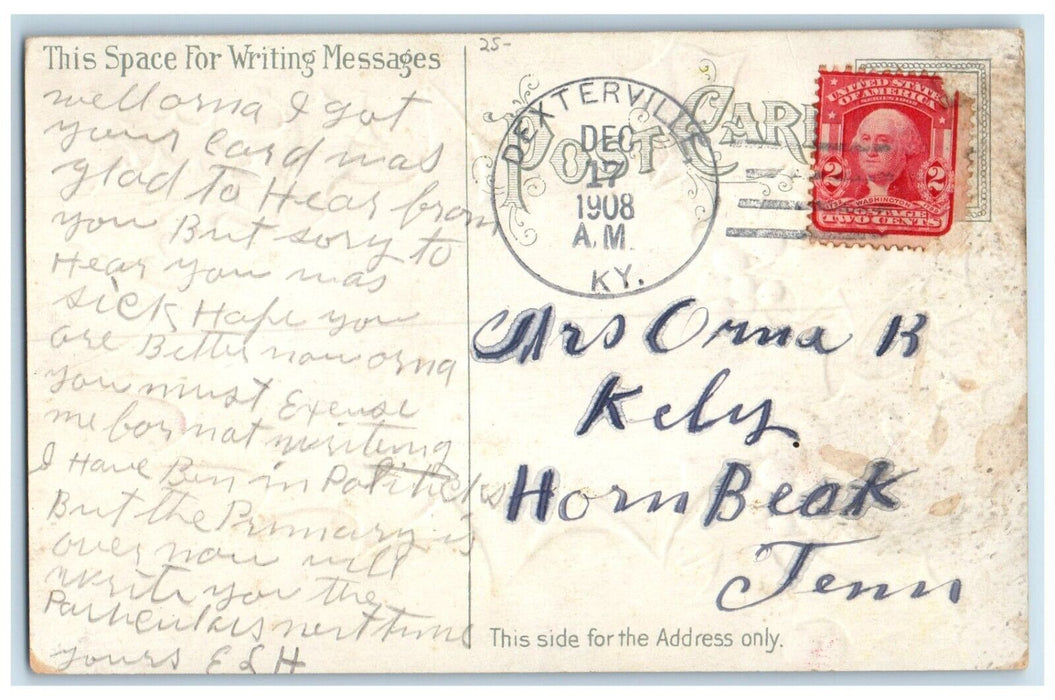 This Space For Writing Messages
well orna I got
your Card was
glad to Hear from
you But sory to
Hear you was
sick Hope you
are Better now orna
you must Excuse
me for not writeing
I Have Ben in Politicks
But the Primary is
over now will
write you the
Particulars next time
yours E L H
25-
POST CARD
DEXTERVILLE
DEC
17
1908
A.M.
KY.
UNITED STATES
OF AMERICA
SERIES 1902
2 2
WASHINGTON
POSTAGE
TWO CENTS
Mrs Orna R
Kely.
Horn Beak
Tenn
This side for the Address only.